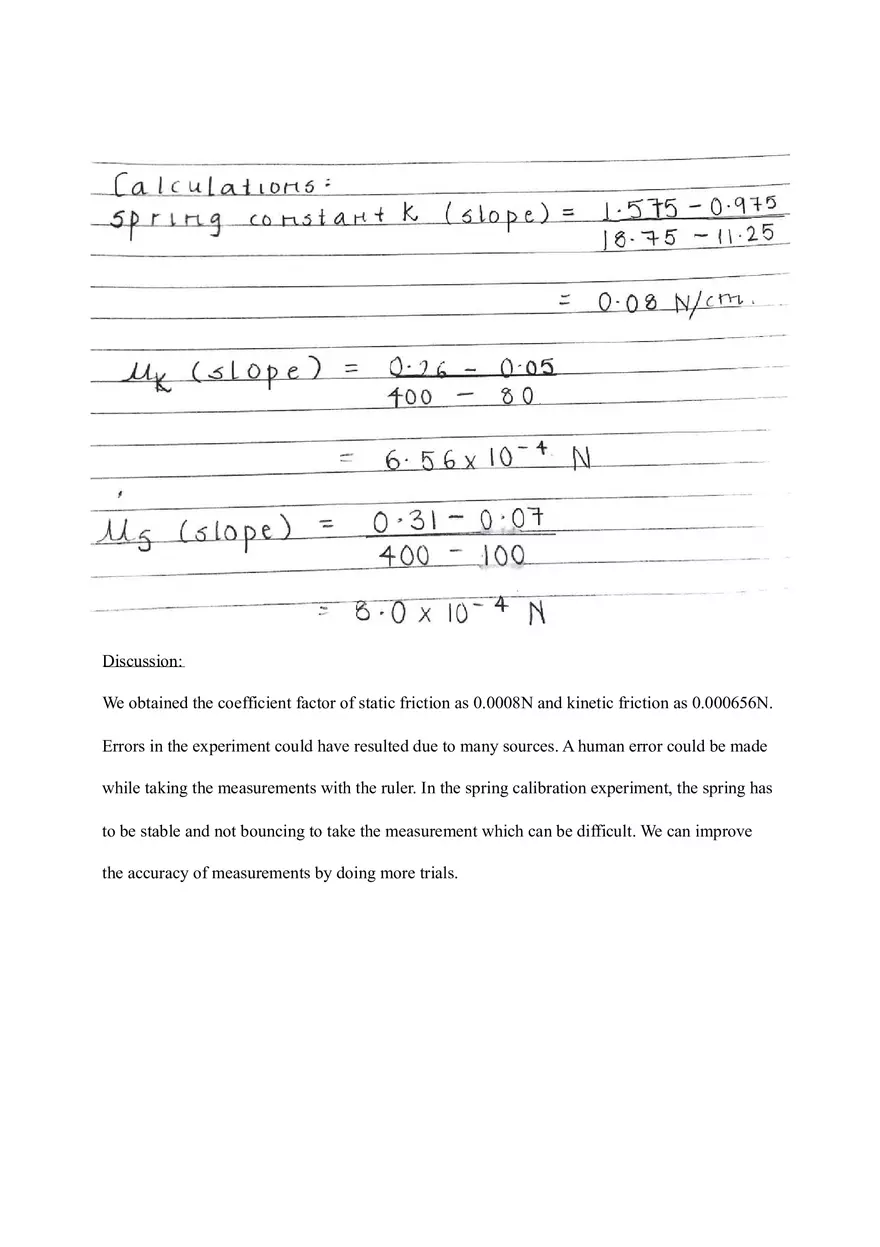 Calculations:
spring constant k (slope) = 1.575 - 0.975
18.75 - 11.25
= 0.08 N/cm.
μk (slope) = 0.26 - 0.05
400 - 80
= 6.56 x 10-4 N
μs (slope) = 0.31 - 0.07
400 - 100
= 8.0 x 10-4 N
Discussion:
We obtained the coefficient factor of static friction as 0.0008N and kinetic friction as 0.000656N.
Errors in the experiment could have resulted due to many sources. A human error could be made
while taking the measurements with the ruler. In the spring calibration experiment, the spring has
to be stable and not bouncing to take the measurement which can be difficult. We can improve
the accuracy of measurements by doing more trials.